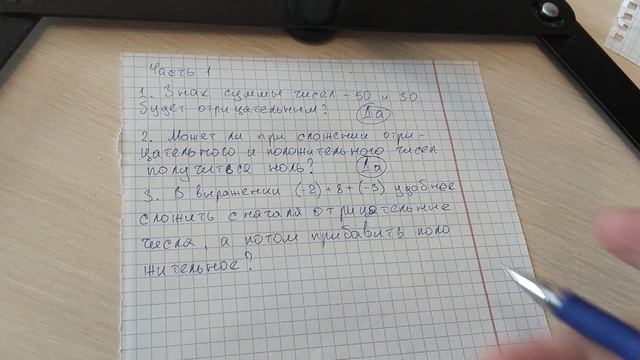 Часть 1
1. Знак суммы чисел -50 и 30
будет отрицательным? Да
2. Может ли при сложении отри-
цательного и положительного чисел
получиться ноль? Да
3. В выражении (-2)+8+(-3) удобнее
сложить сначала отрицательные
числа, а потом прибавить поло
жительное?